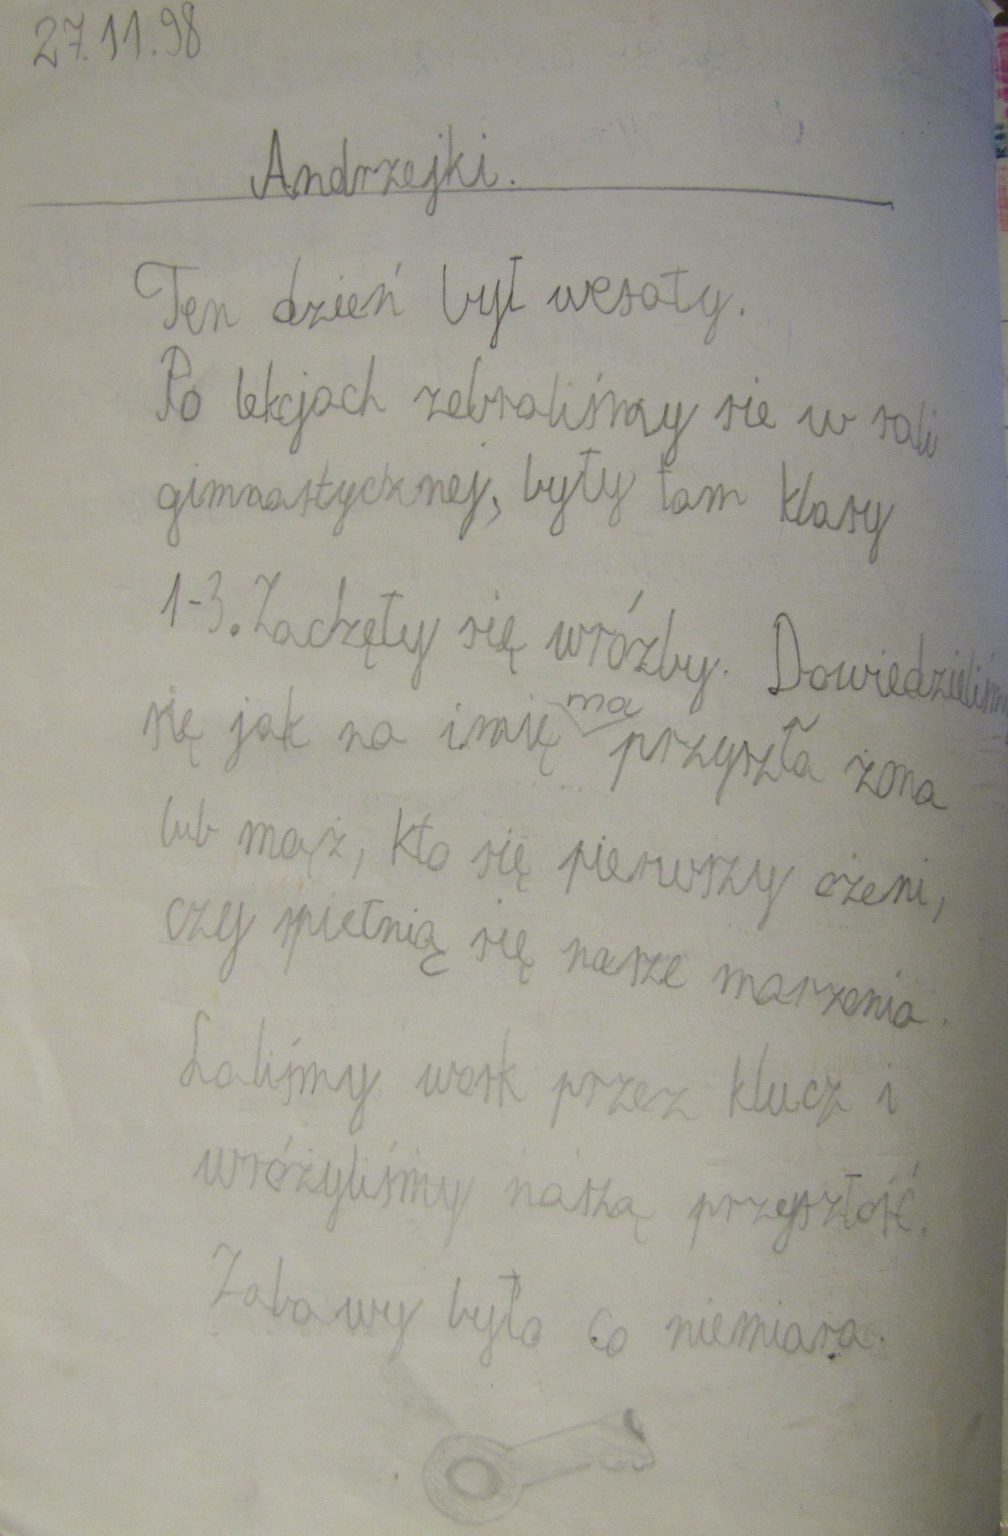 27.11.98
Andrzejki.
Ten dzień był wesoły.
Po lekcjach zebraliśmy sie w sali
gimnastycznej, były tam klasy
1-3. Zaczęły się wróżby. Dowiedzieliśmy
się jak na imię ma przyszła żona
lub mąż, kto się pierwszy ożeni,
czy spiełnią się nasze marzenia.
Laliśmy wosk przez klucz i
wróżyliśmy naszą przyszłość.
Zabawy było co niemiara.